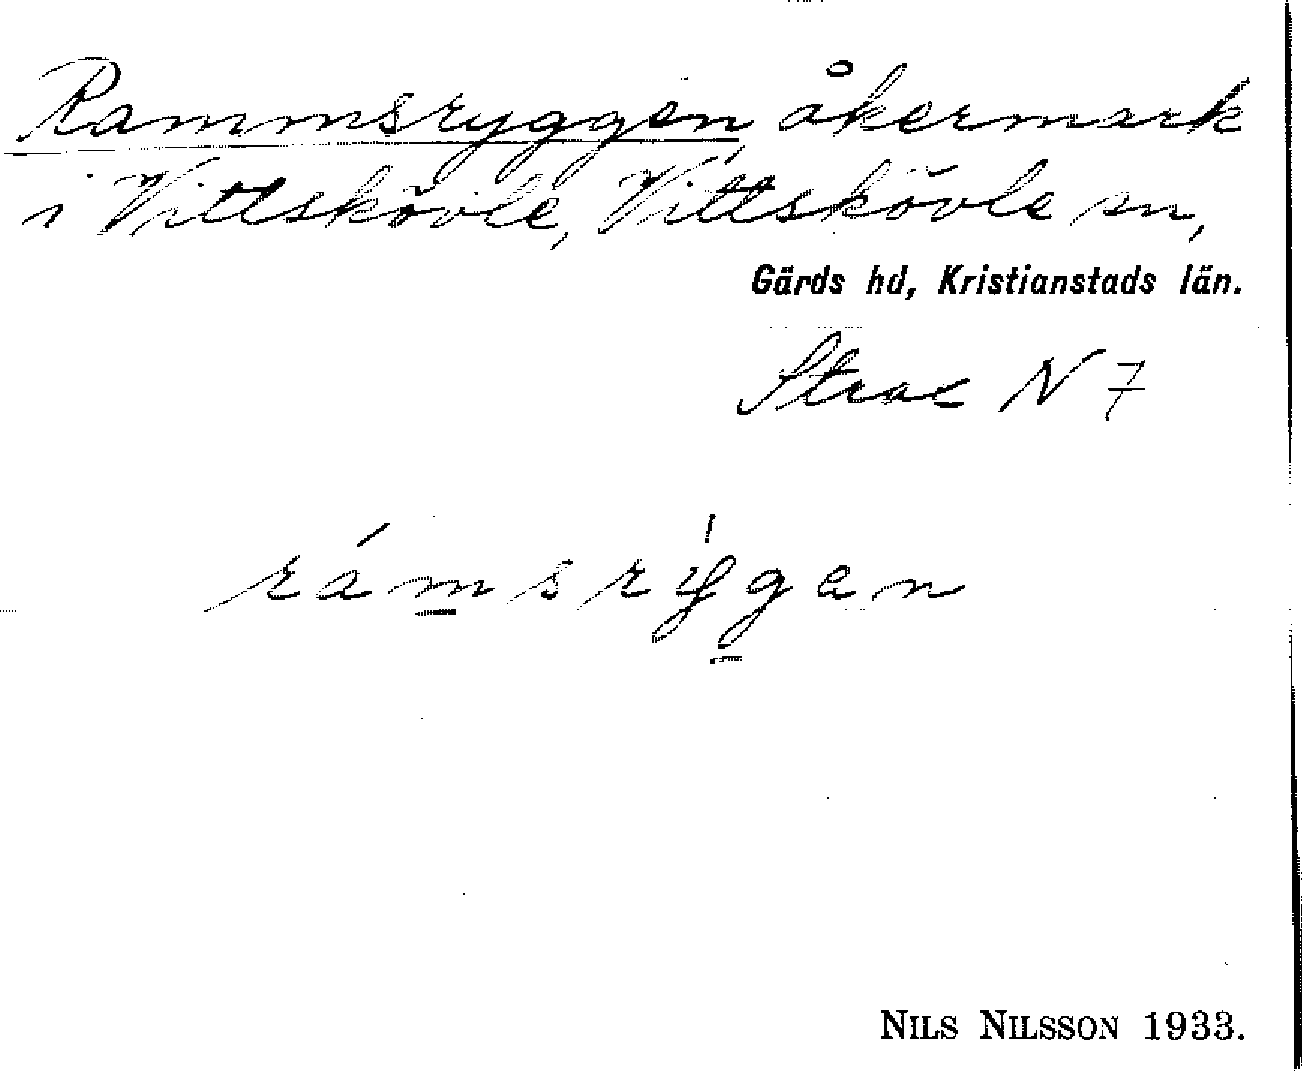 Rammsryggen åkermark
i Vittskövle, Vittskövle sn,
Gärds hd, Kristianstads län.
N 7
rámsrýgen
NILS NILSSON 1933.